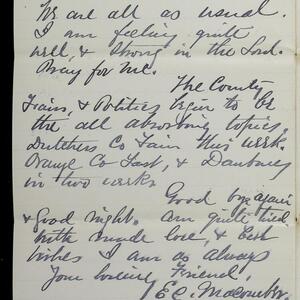 We are all as usual.
I am feeling quite
well, & strong in the Lord.
Pray for me.
The County
Fairs, & Politics begin to be
the all absorbing topics.
Dutchess Co Fair this week.
Orange Co Last, & Danbury
in two weeks
Good bye again
& Good night. am quite tired
with much love, & best
wishes I am as always
Your loving Friend,
E.C. Macomber